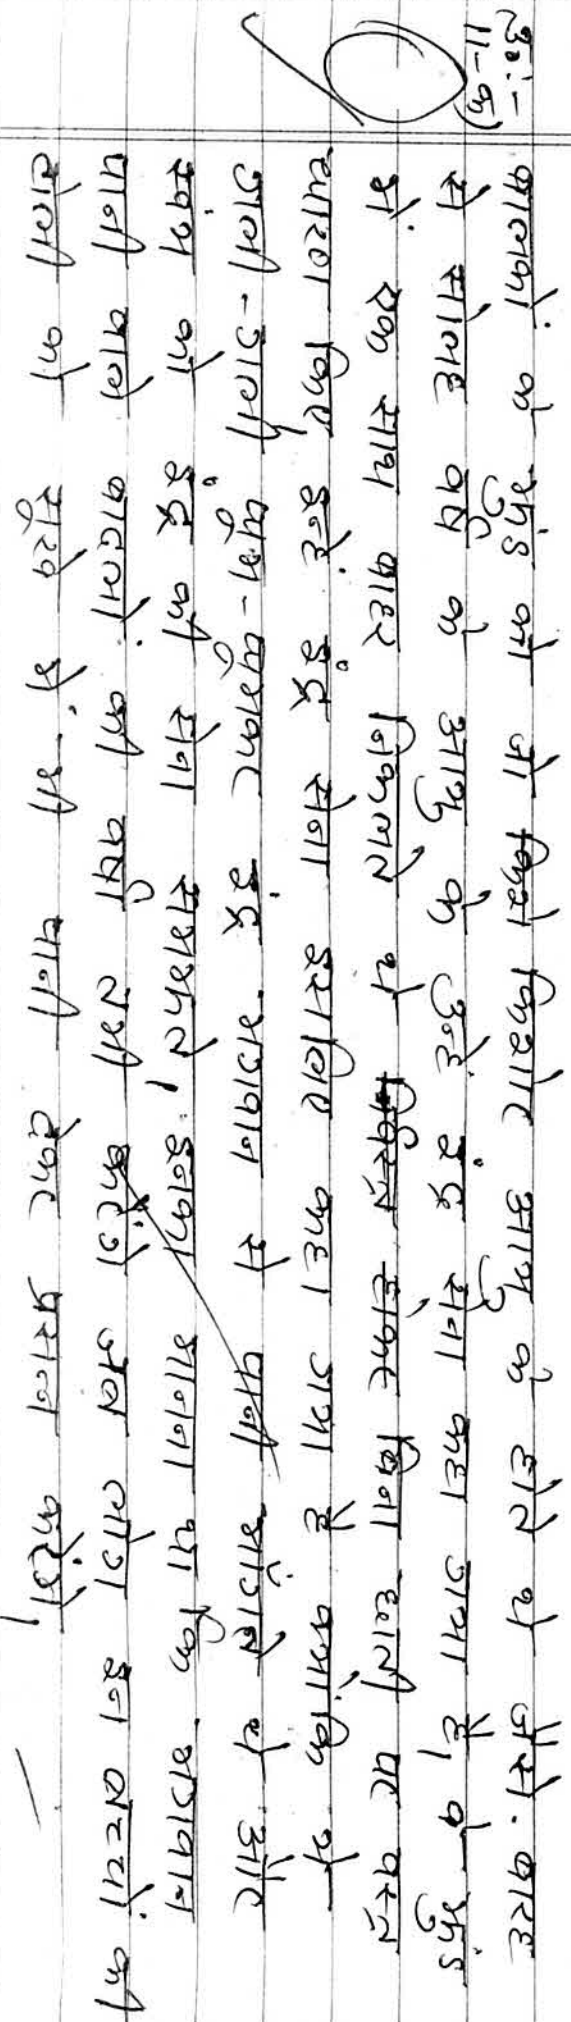 उ०:-
11-क)
बालकों के झुंड को जो किशो किशोर आयु के होते थे जैसे. बारह
से सोलह वर्ष के आयु के उन्हें इंद्र सेना कहा गया है, वे झुंड
में एक साथ बाहर निकलते थे होकर बिना छाती पर वस्त्र
धारण किए इन्हें इंद्र सेना इसलिए कहा गया है क्योंकि ये
गली-गली घूम-घूमकर इंद्र भगवान से पानी माँगते थे और
स्वंय को इंद्र की सेना समझते, इनका मानना था कि भगवान
पानी वाले बादलों की वर्षा तभी करेंगे जब लोग इन बच्चों की
टोली को सूखे में भी पानी देकर प्रसन्न करेंगे।